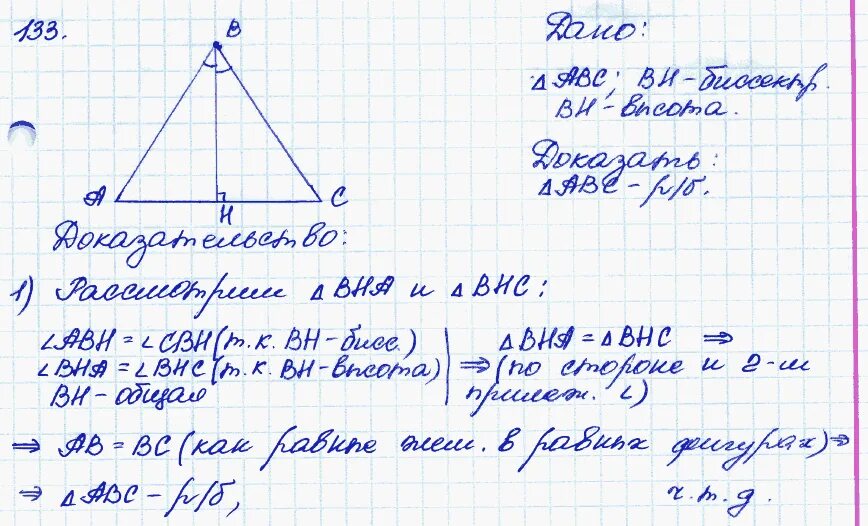 133.
B
A
H
C
Дано:
△ABC; BH – биссектр.
BH – высота.
Доказать:
△ABC – р/б.
Доказательство:
1) Рассмотрим △BHA и △BHC:
∠ABH = ∠CBH (т.к. BH – бисс.)
∠BHA = ∠BHC (т.к. BH – высота)
BH – общая
△BHA = △BHC ⇒
⇒ (по стороне и 2-м
прилеж. ∠)
⇒ AB = BC (как равные элем. в равных фигурах) ⇒
⇒ △ABC – р/б,
ч.т.д.